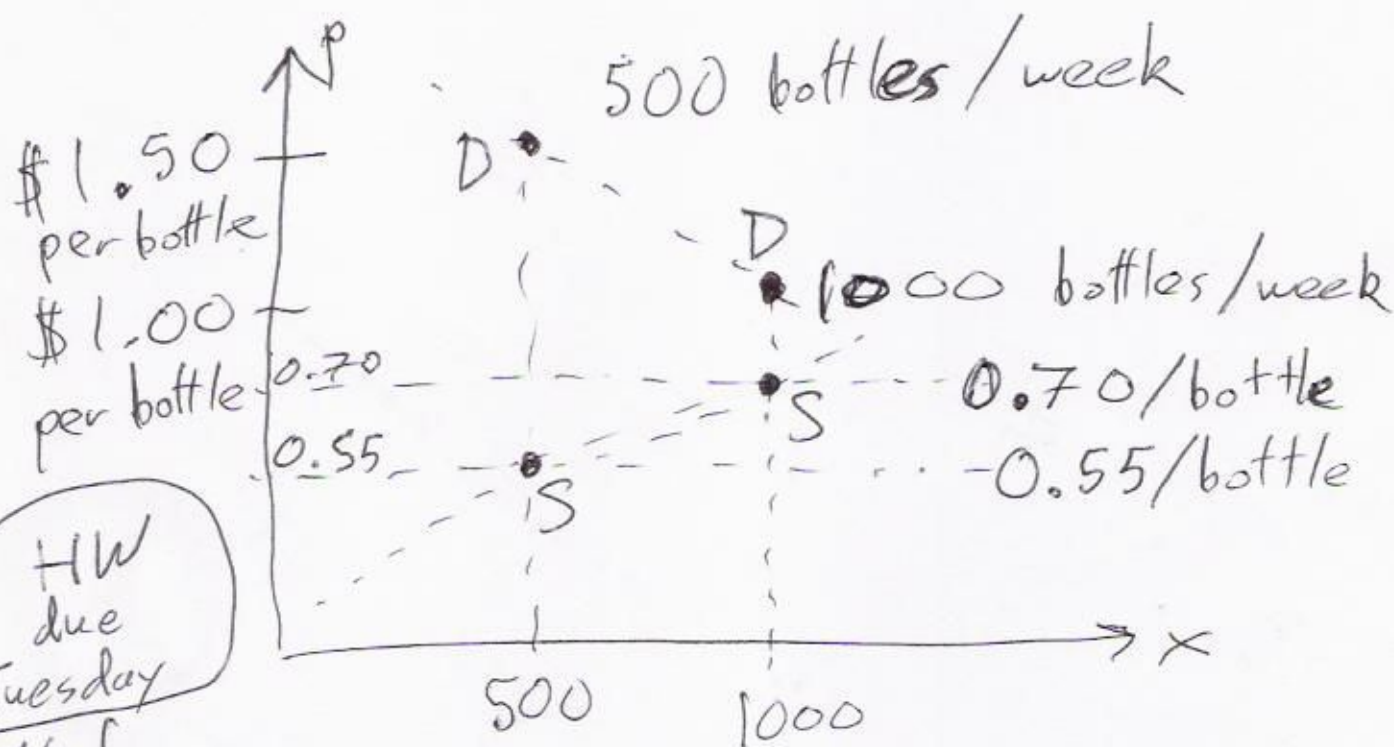 p
500 bottles/week
$1.50
per bottle
D
D
1000 bottles/week
$1.00
per bottle
0.70
0.70/bottle
S
0.55
0.55/bottle
S
HW
due
Tuesday
x
500
1000